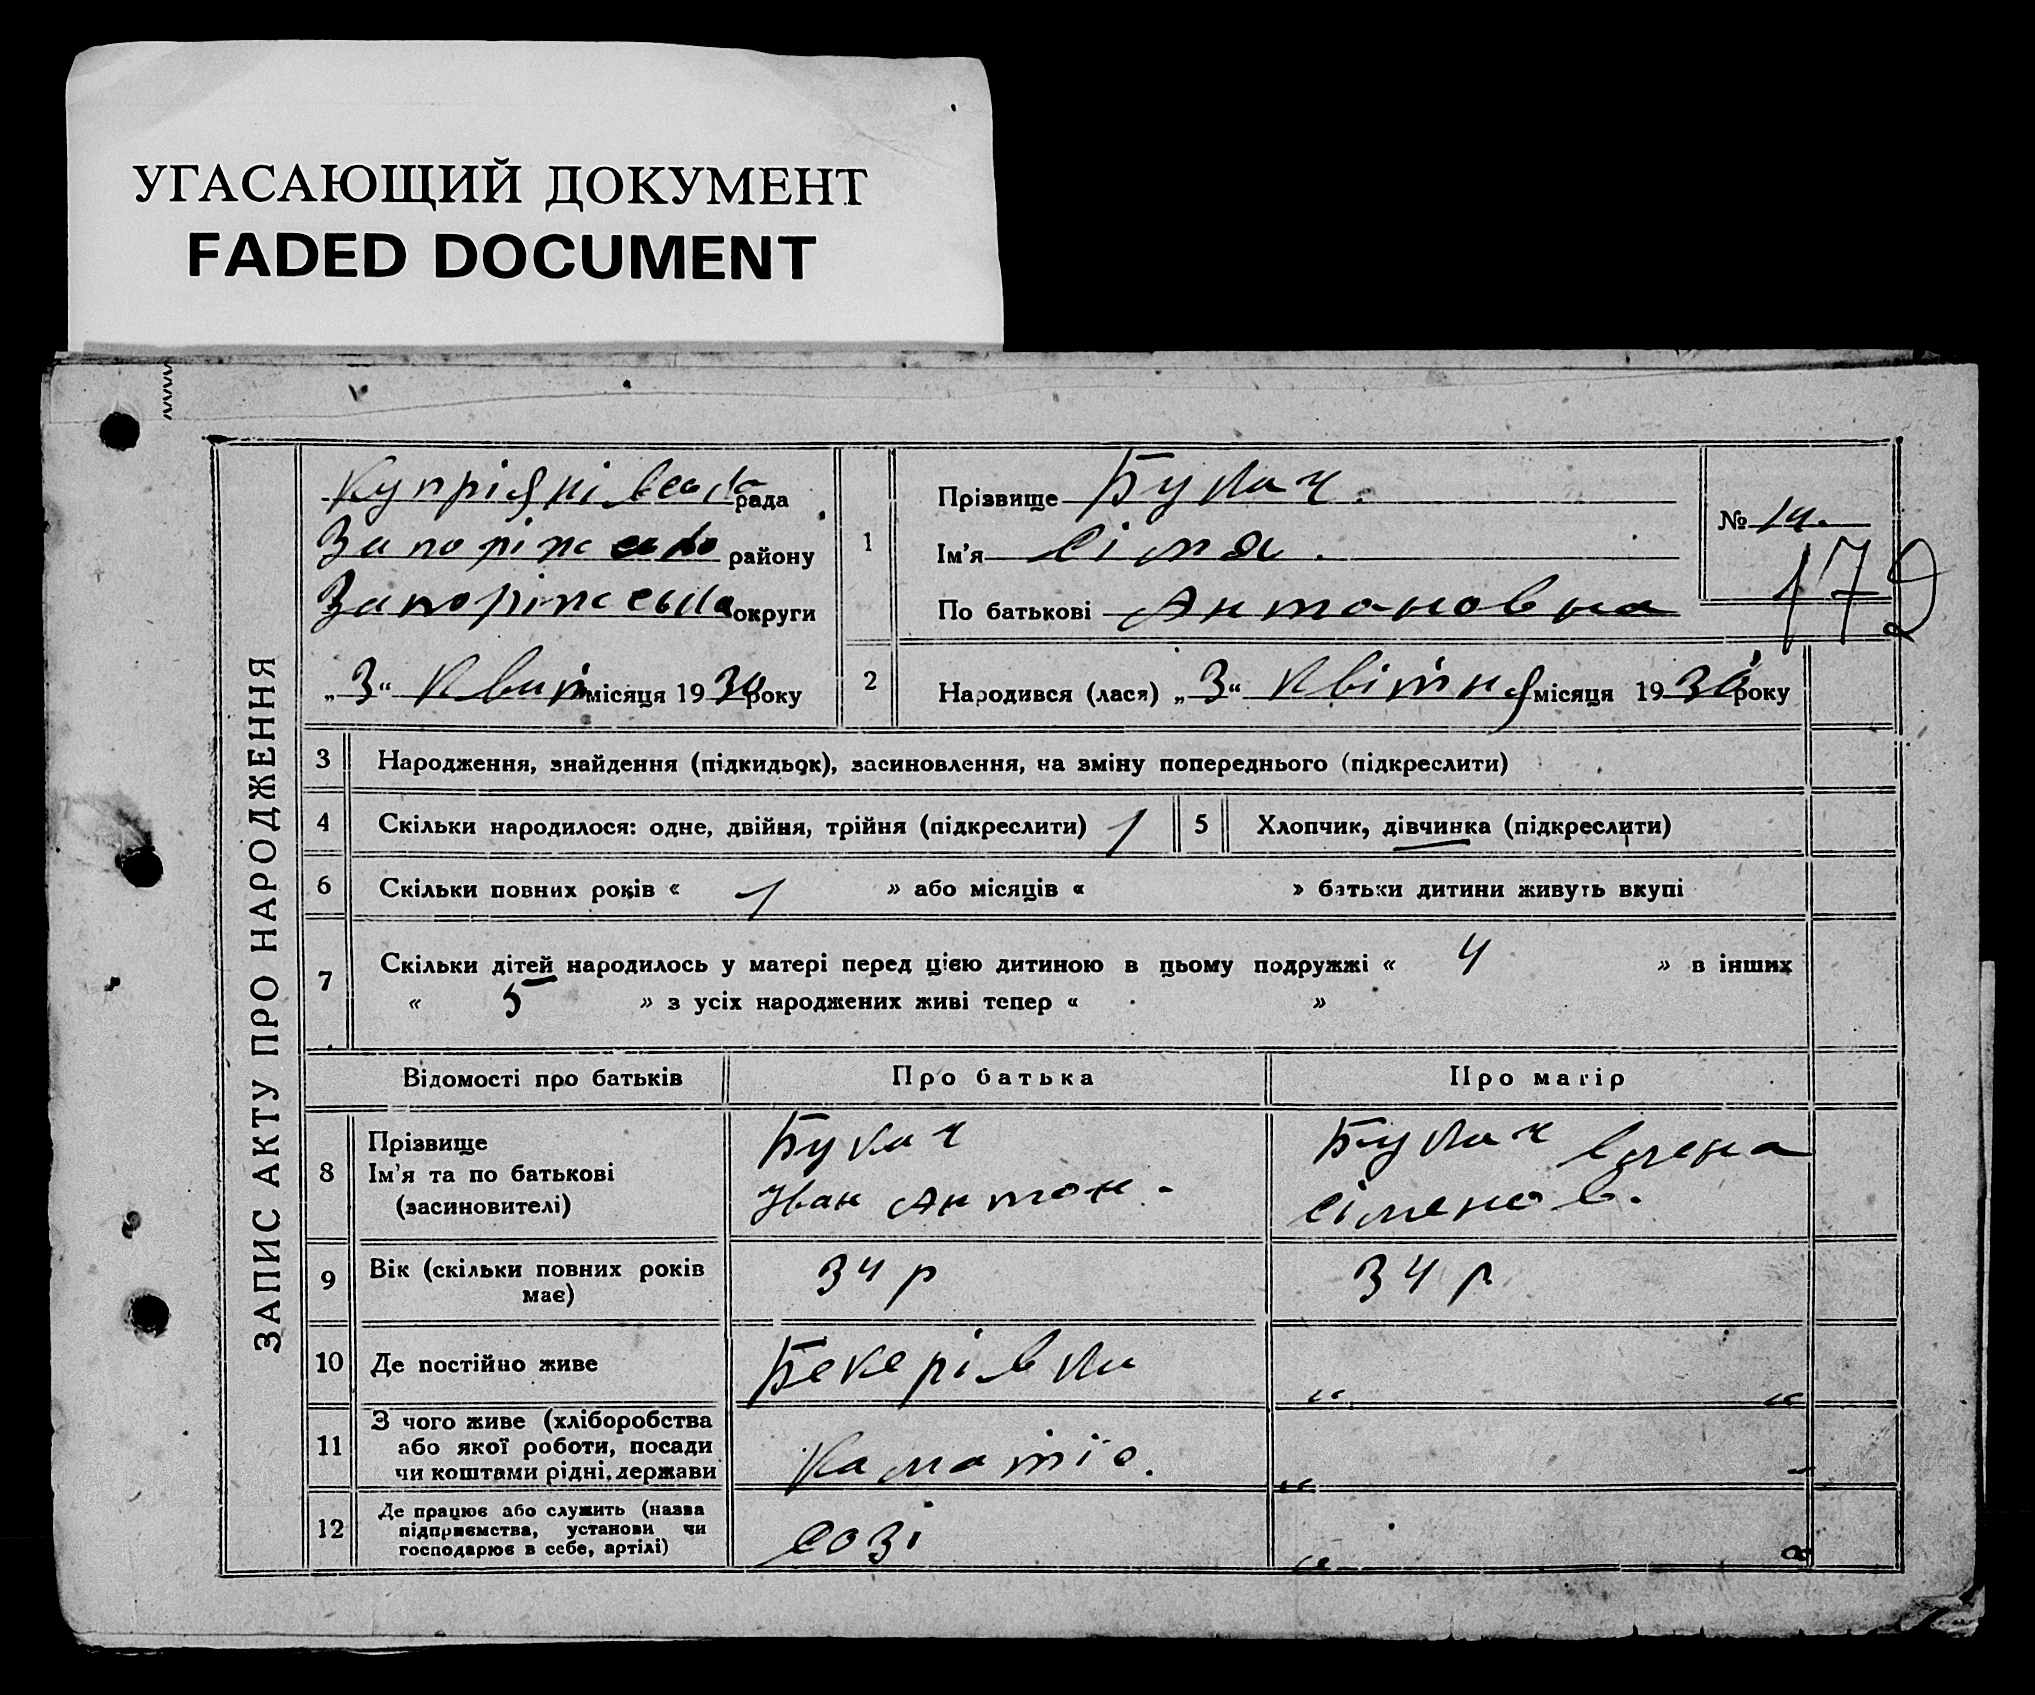 УГАСАЮЩИЙ ДОКУМЕНТ
FADED DOCUMENT
ЗАПИС АКТУ ПРО НАРОДЖЕННЯ
рада
району
округи
„3“ місяця 1930 року
1
Прізвище Булах.
Ім'я Сіма.
По батькові Антоновна
№ 14.
172
2
Народився (лася) „3“ Квітня місяця 1930 року
3 Народження, знайдення (підкидьок), засиновлення, на зміну попереднього (підкреслити)
4 Скільки народилося: одне, двійня, трійня (підкреслити) 1
5 Хлопчик, дівчинка (підкреслити)
6 Скільки повних років « 1 » або місяців « » батьки дитини живуть вкупі
7 Скільки дітей народилось у матері перед цією дитиною в цьому подружжі « 4 » в інших
« 5 » з усіх народжених живі тепер « »
Відомості про батьків Про батька Про матір
8 Прізвище
Ім'я та по батькові
(засиновителі)
Булах
Іван Антон.
Булах Елена
Сіменов.
9 Вік (скільки повних років
має)
34 р 34 р
10 Де постійно живе " "
11 З чого живе (хліборобства
або якої роботи, посади
чи коштами рідні, держави
"
12 Де працює або служить (назва
підприємства, установи чи
господарює в себе, артілі)
созі "